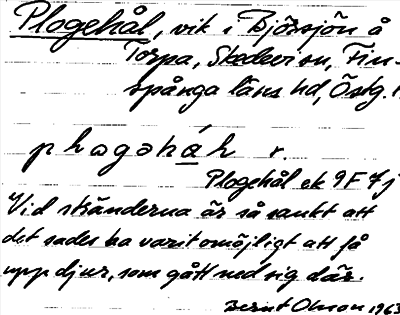 Plogehål, vik i Björsjön å
Torpa, Skedevi sn, Fin-
spånga läns hd, Östg.
plogehål r.
Plogehål ek 9F 7j
Vid stränderna är så sankt att
det sades ha varit omöjligt att få
upp djur, som gått ned sig där.
Bernt Olsson 1963